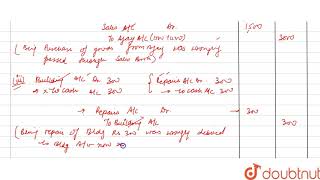 Sales A/c Dr. 1,500
To Ajay A/c (1500+1500) 3000
(Being Purchase of goods from Ajay was wrongly
passed through Sales Book)
(iii) Building A/c Dr. 300 Repairs A/c Dr. 300
x to cash A/c 300 - to cash A/c 300
→ Repairs A/c Dr. 300
To Building A/c 300
(Being repair of Bldg Rs 300 was wrongly debited
to Bldg A/c now
doubtnut